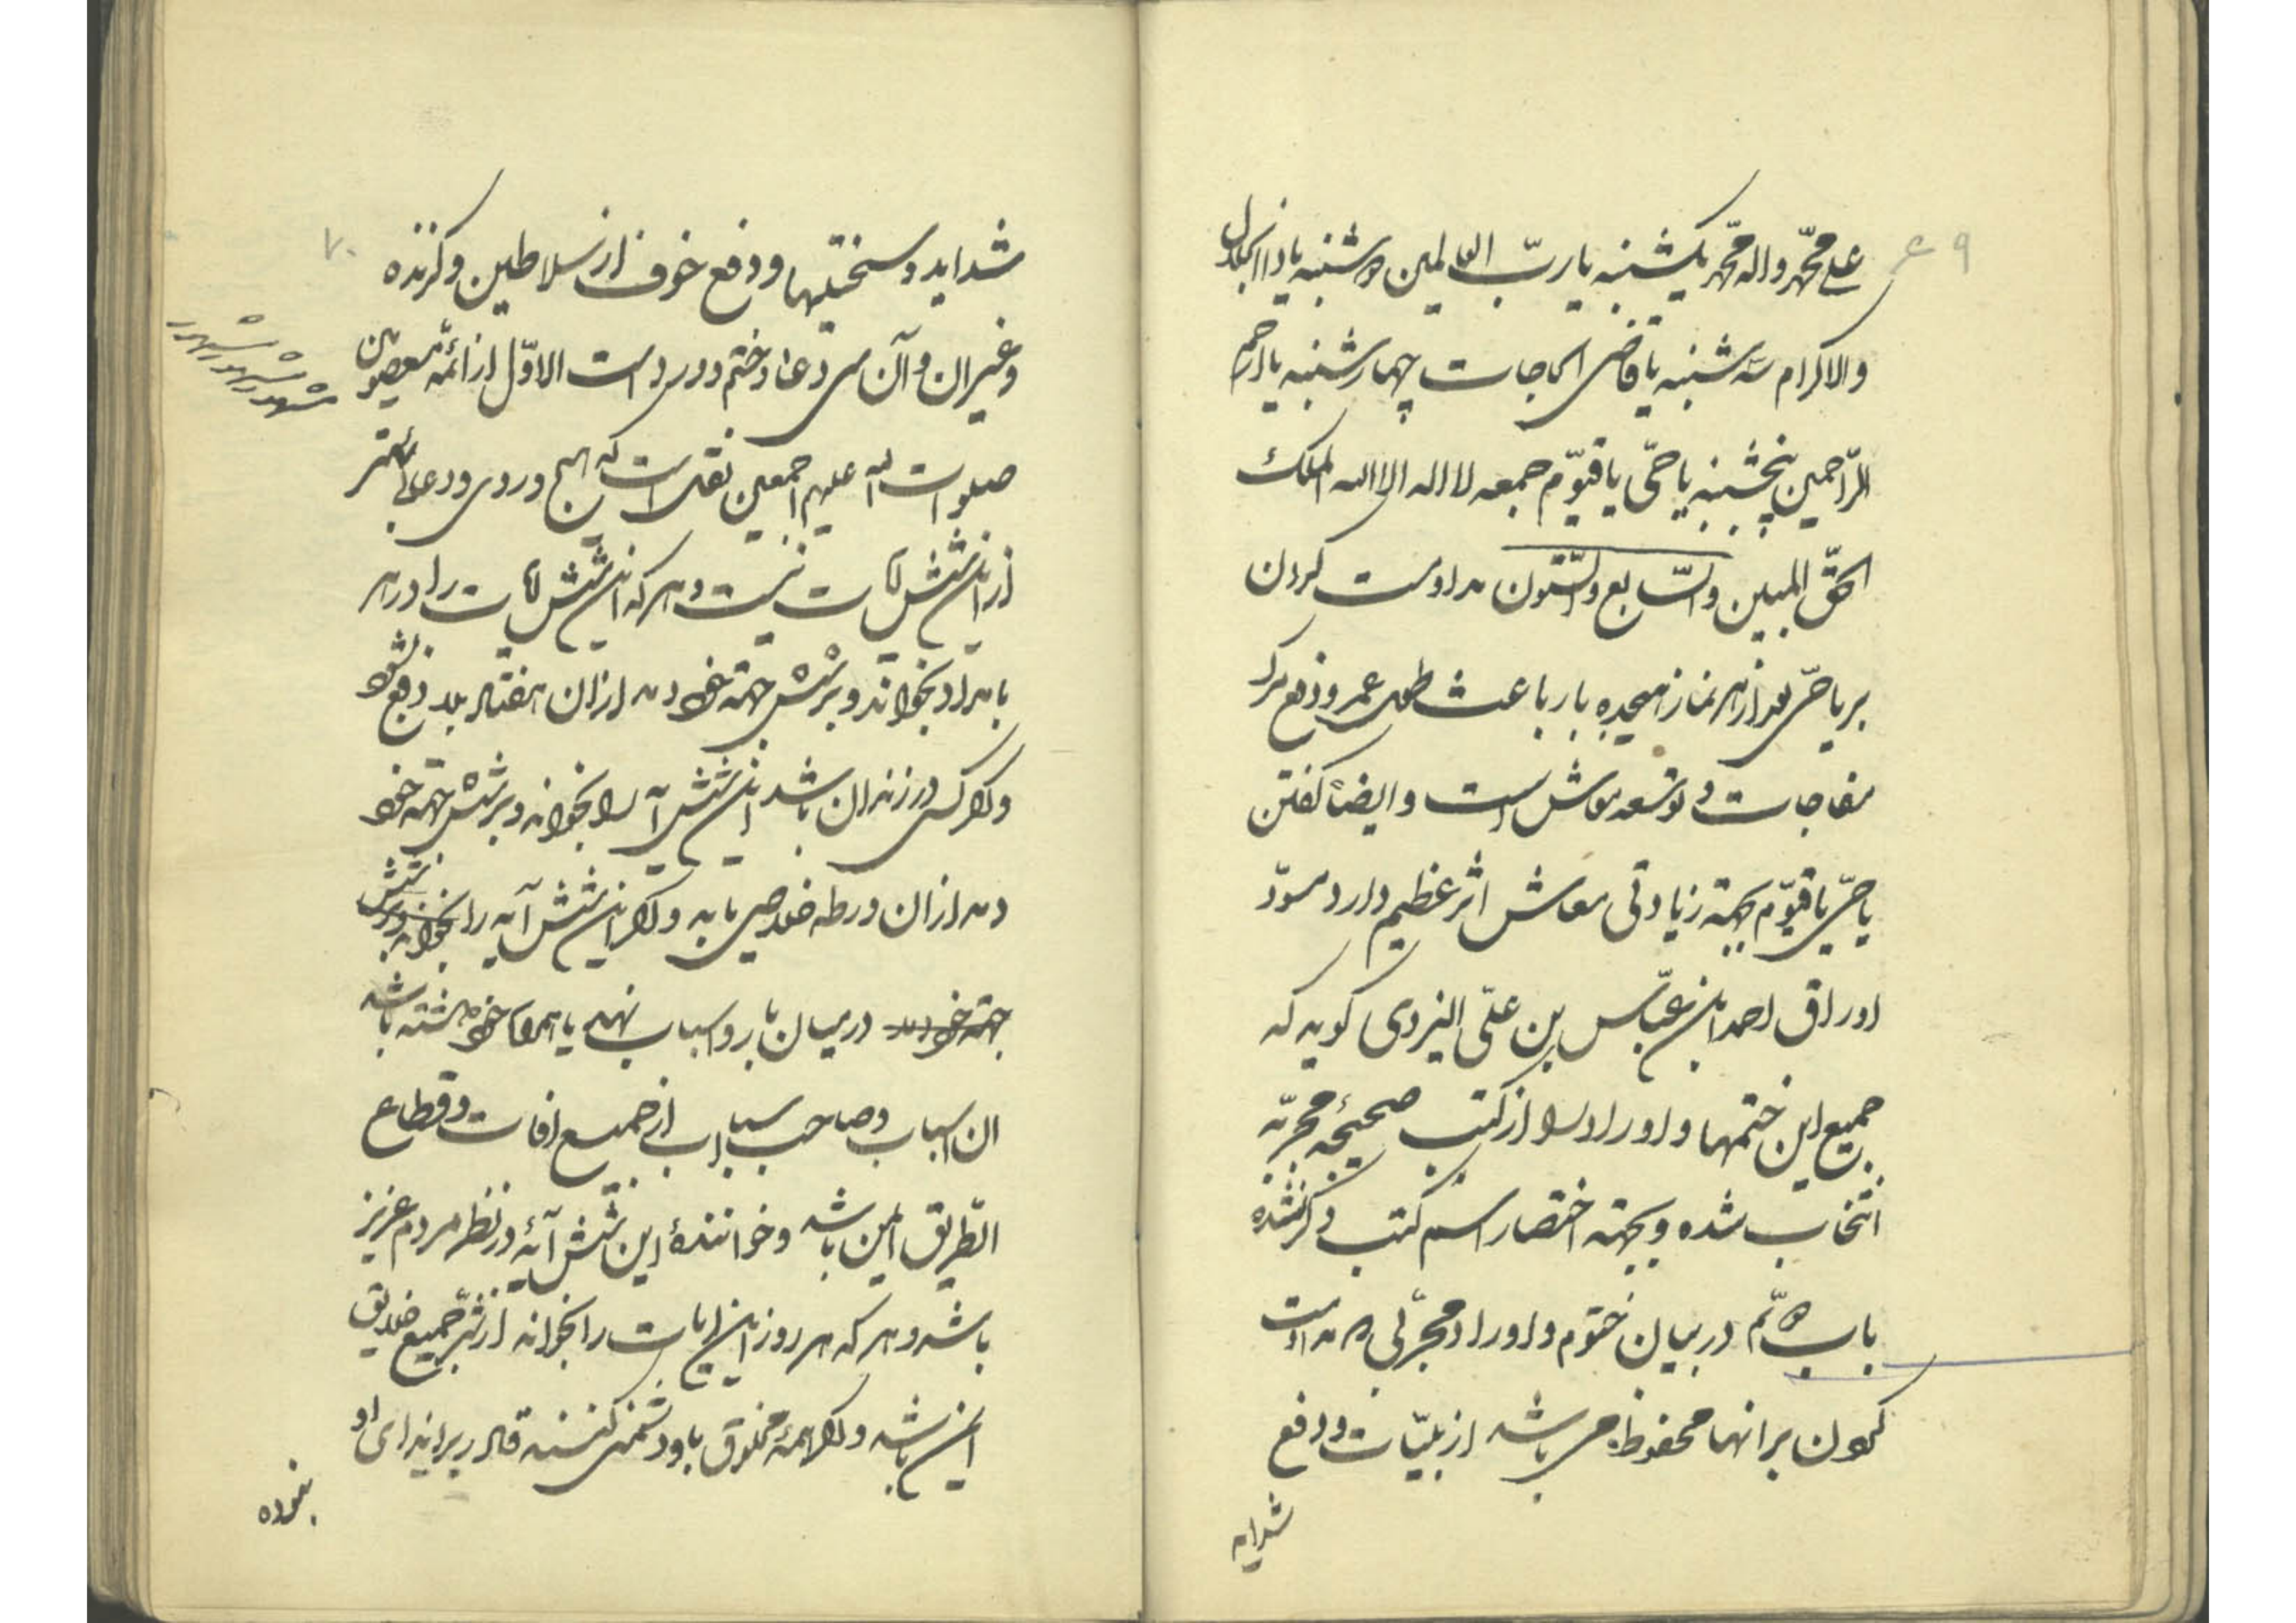 ۶۹
علی محمّد واله محمّد یکشنبه یا ربّ العالمین دوشنبه یا ذا الجلال
والاکرام سه شنبه یا قاضی الحاجات چهارشنبه یا ارحم
الرّاحمین پنجشنبه یا حیّ یا قیّوم جمعه لا اله الا الله الملک
الحقّ المبین والسّابع والستّون مداومت کردن
بر یا حیّ بعد از هر نماز هیجده بار باعث طول عمر ودفع مرک
مفاجات و توسعه معاش است وایضاً کفتن
یا حیّ یا قیّوم بجهته زیادتی معاش اثر عظیم دارد مسوّد
اوراق احمد ابن عبّاس بن علیّ الیزدی کوید که
جمیع این ختمها واوراد را از کتب صحیحه مجرّبه
انتخاب شده و بجهته اختصار اسم کتب ذکر نشده
باب دهم در بیان ختوم واوراد مجرّبی که مداومت
کردن برانها محفوظ می باشد از بلیّات ودفع
شداید
۷۰
شداید وسختیها ودفع خوف از سلاطین وکزنده
وغیران وآن سی دعا وختم وورد است الاوّل از ائمّه معصومین
صلوات الله علیهم اجمعین نقل است که هیچ وردی ودعائی بهتر
از این شش آیات نیست وهر که این شش آیات را در هر
بامداد بخواند وبر شش جهته خود دمد ازان هفتاد بلا دفع شود
واکر کسی در زندان باشد این شش آیه را بخواند وبر شش جهته خود
دمد ازان ورطه خلاصی یابد واکر این شش آیه را بخواند وبر شش
جهته خود دمد در میان بار واسباب نهد یا همراه خود داشته باشد
ان اسباب وصاحب اسباب از جمیع افات وقطاع
الطّریق ایمن باشد وخوانندهٔ این شش آیهٔ در نظر مردم عزیز
باشد وهر که هر روز این ایات را بخواند از شرّ جمیع خلایق
ایمن باشد واکر همهٔ مخلوق باو دشمنی کنند قادر بر ایذای او
نبوده